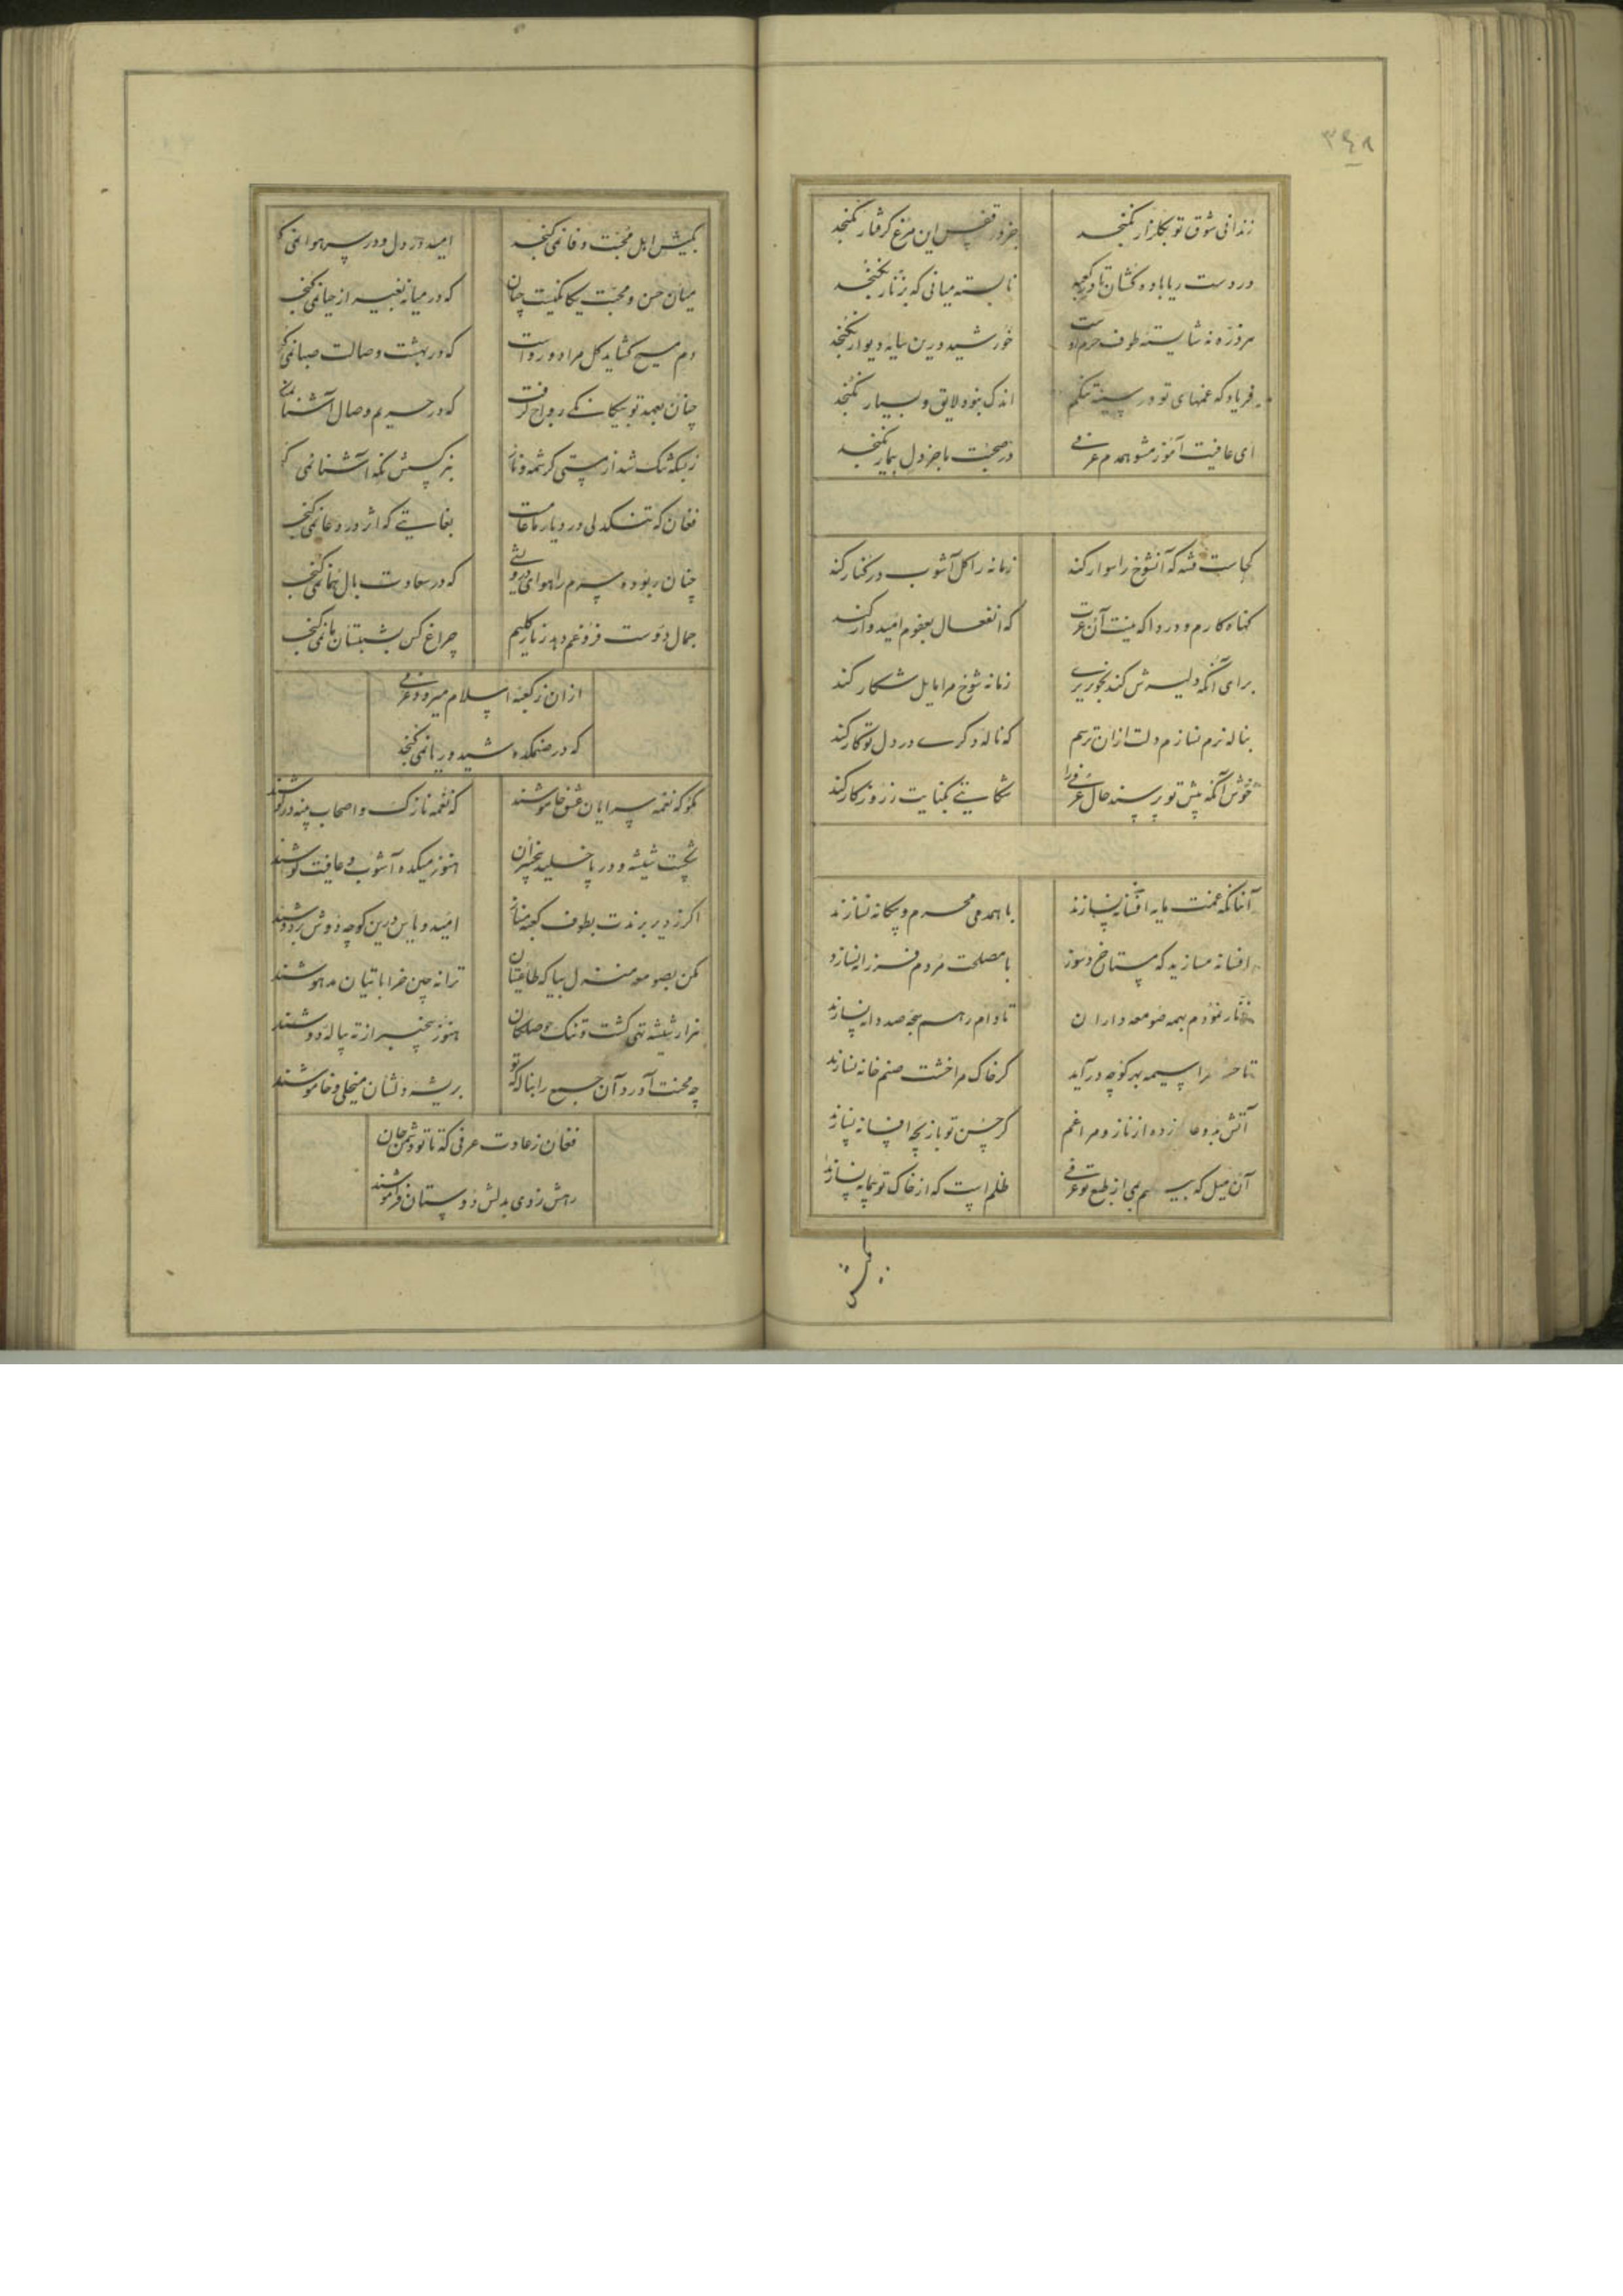 ۳٤۸
زندانی شوق تو بگلزار نگنجد جز در قفس این مرغ گرفتار نگنجد
در دست ریا باده کشان تا در کعبه نابسته میانی که بزنار نگنجد
هر ذره نه شایسته طوف حرم اوست خورشید درین سایه دیوار نگنجد
فریاد که غمهای تو در سینه تنگم اندک نبود لایق و بسیار نگنجد
ای عافیت آموز مشو همدم عرفی در صحبت ما جز دل بیمار نگنجد
کجاست فتنه که آنشوخ را سوار کند زمانه را گل آشوب در کنار کند
گناه کارم و دردا که نیست آن عزت که انفعال بعفوم امیدوار کند
برای آنکه دلیرش کند بخونریزی زمانه شوخ مرا مایل شکار کند
بناله نرم نسازم دلت ازان ترسم که ناله دگری در دل تو کار کند
خوش آنکه پیش تو پرسند حال عرفی را شکایتی بکنایت ز روزگار کند
آنانکه غمت مایه افسانه نسازند با همدمی محرم و بیگانه نسازند
افسانه مسازید که مستان با مصلحت مردم فرزانه نسازند
زنار نمودم بهمه صومعه داران تا دام رهم سبحه صد دانه نسازند
تا سراسیمه بهر کوچه درآید گر خاک مرا خشت صنم خانه نسازند
آتش زده از ناز و مرا غم گر حسن تو بازیچه افسانه نسازند
آن میل که از طبع تو عرفی ظلم است که از خاک تو پیمانه نسازند
بکیش اهل محبت وفا نمی گنجد امید در دل و در سر هوا نمی گنجد
میان حسن و محبت یگانگیست چنان که در میانه بغیر از حیا نمی گنجد
دم مسیح گشاید گل مراد و رواست که در بهشت وصالت صبا نمی گنجد
چنان بعهد تو بیگانگی رواج گرفت که در حریم وصال آشنا نمی گنجد
ز بسکه تنگ شد از مستی کرشمه و ناز بنرگسش نگه آشنا نمی گنجد
فغان که تنگدلی در دیار ما عام است بغایتی که اثر در دعا نمی گنجد
چنان ربوده سرم را هوای درویشی که در سعادت بال هما نمی گنجد
جمال دوست فروغم دهد ز نار کلیم چراغ کس بشبستان ما نمی گنجد
ازان ز کعبه اسلام میرود عرفی
که در صنمکده شید و ریا نمی گنجد
مگو که نغمه سرایان عشق خاموشند که نغمه نازک و اصحاب پنبه در گوشند
شکست شیشه و در پا خلید بیخبران هنوز میکده آشوب و عافیت کوشند
اگر ز دیر برندت بطوف کعبه مناز امید و یاس درین کوچه دوش بر دوشند
مکن بصومعه منزل بیا که طاعتیان ترانه چین خراباتیان مدهوشند
هزار شیشه تهی گشت و تنک حوصلگان هنوز بیخبر از ته پیاله دوشند
چه محنت آورد آن جمع را بناله که تو بریشه دلشان میخلی و خاموشند
فغان ز عادت عرفی که تا تو دشمن جان
رهش زدی بدلش دوستان فراموشند